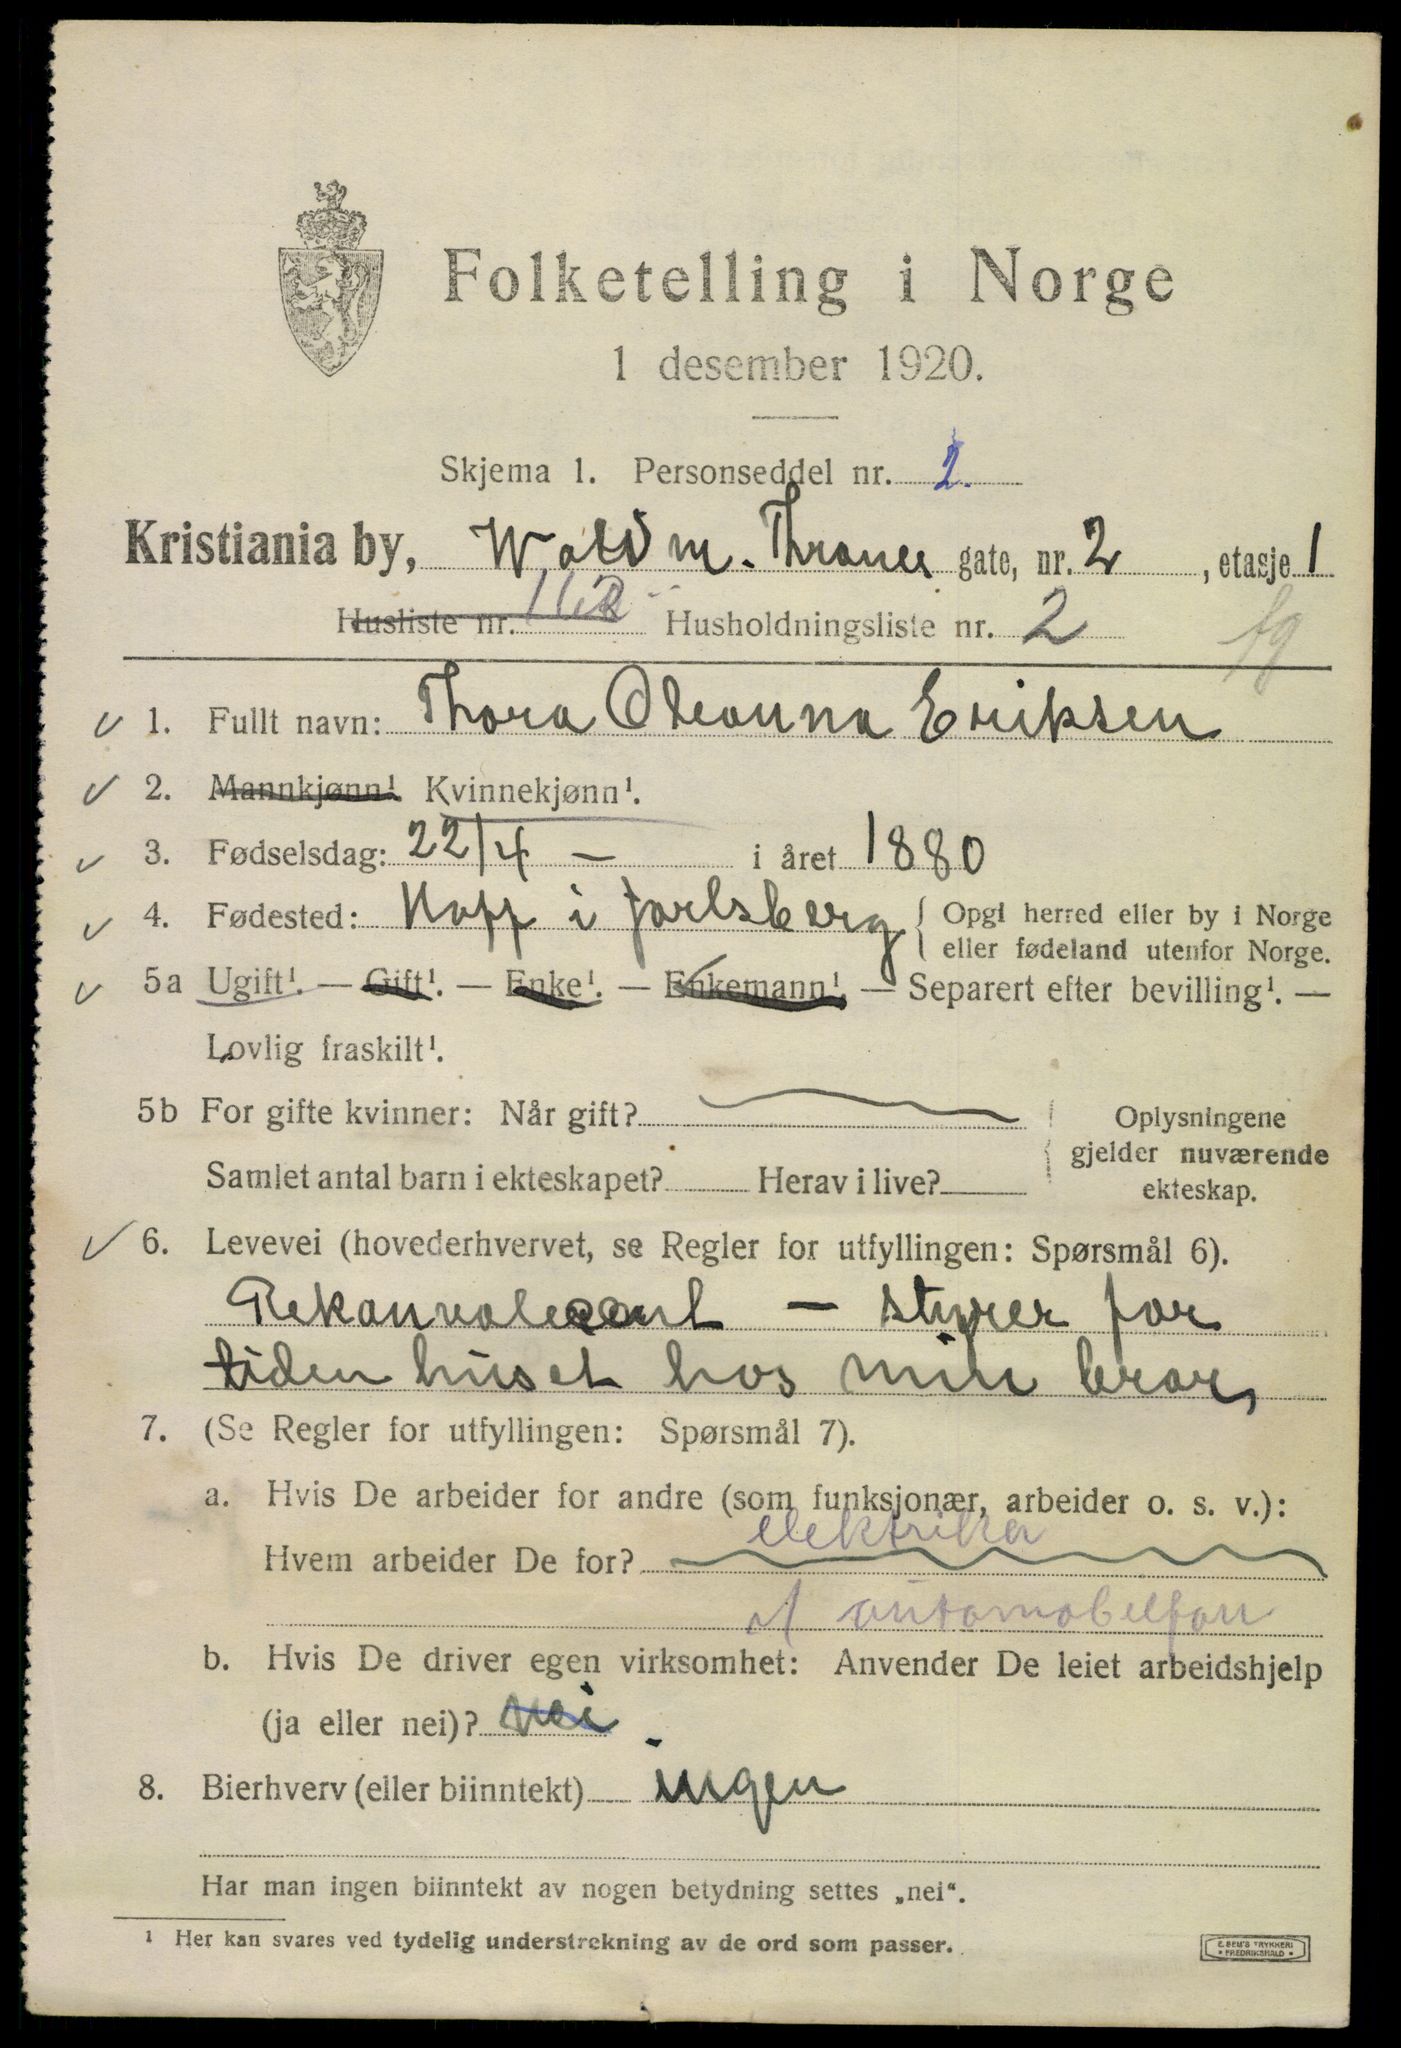 Folketelling i Norge
1 desember 1920.
Skjema 1. Personseddel nr. 2.
Kristiania by, Waldm. Thranes gate, nr. 2, etasje 1
Husliste nr. Husholdningsliste nr. 2
1. Fullt navn: Thora Oleanna Eriksen
2. Mannkjønn¹. Kvinnekjønn¹.
3. Fødselsdag: 22/4 – i året 1880
4. Fødested: Hoff i Jarlsberg { Opgi herred eller by i Norge
eller fødeland utenfor Norge.
5a Ugift¹. — Gift¹. — Enke¹. — Enkemann¹. — Separert efter bevilling¹. —
Lovlig fraskilt¹.
5b For gifte kvinner: Når gift? Oplysningene
gjelder nuværende
Samlet antal barn i ekteskapet? Herav i live? ekteskap.
6. Levevei (hovederhvervet, se Regler for utfyllingen: Spørsmål 6).
Rekonvalecent – styrer for
tiden huset hos min bror,
7. (Se Regler for utfyllingen: Spørsmål 7).
a. Hvis De arbeider for andre (som funksjonær, arbeider o. s. v.):
elektriker
Hvem arbeider De for?
automobelforr
b. Hvis De driver egen virksomhet: Anvender De leiet arbeidshjelp
(ja eller nei)? nei
8. Bierhverv (eller biinntekt) ingen
Har man ingen biinntekt av nogen betydning settes „nei“.
¹ Her kan svares ved tydelig understrekning av de ord som passer.
E. SEM'S TRYKKERI
• FREDRIKSHALD •